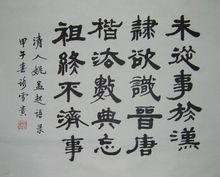 未從事於漢
隸欲識晉唐
楷法數典忘
祖終不濟事
清人姚孟起語錄
甲午春詩雪貴